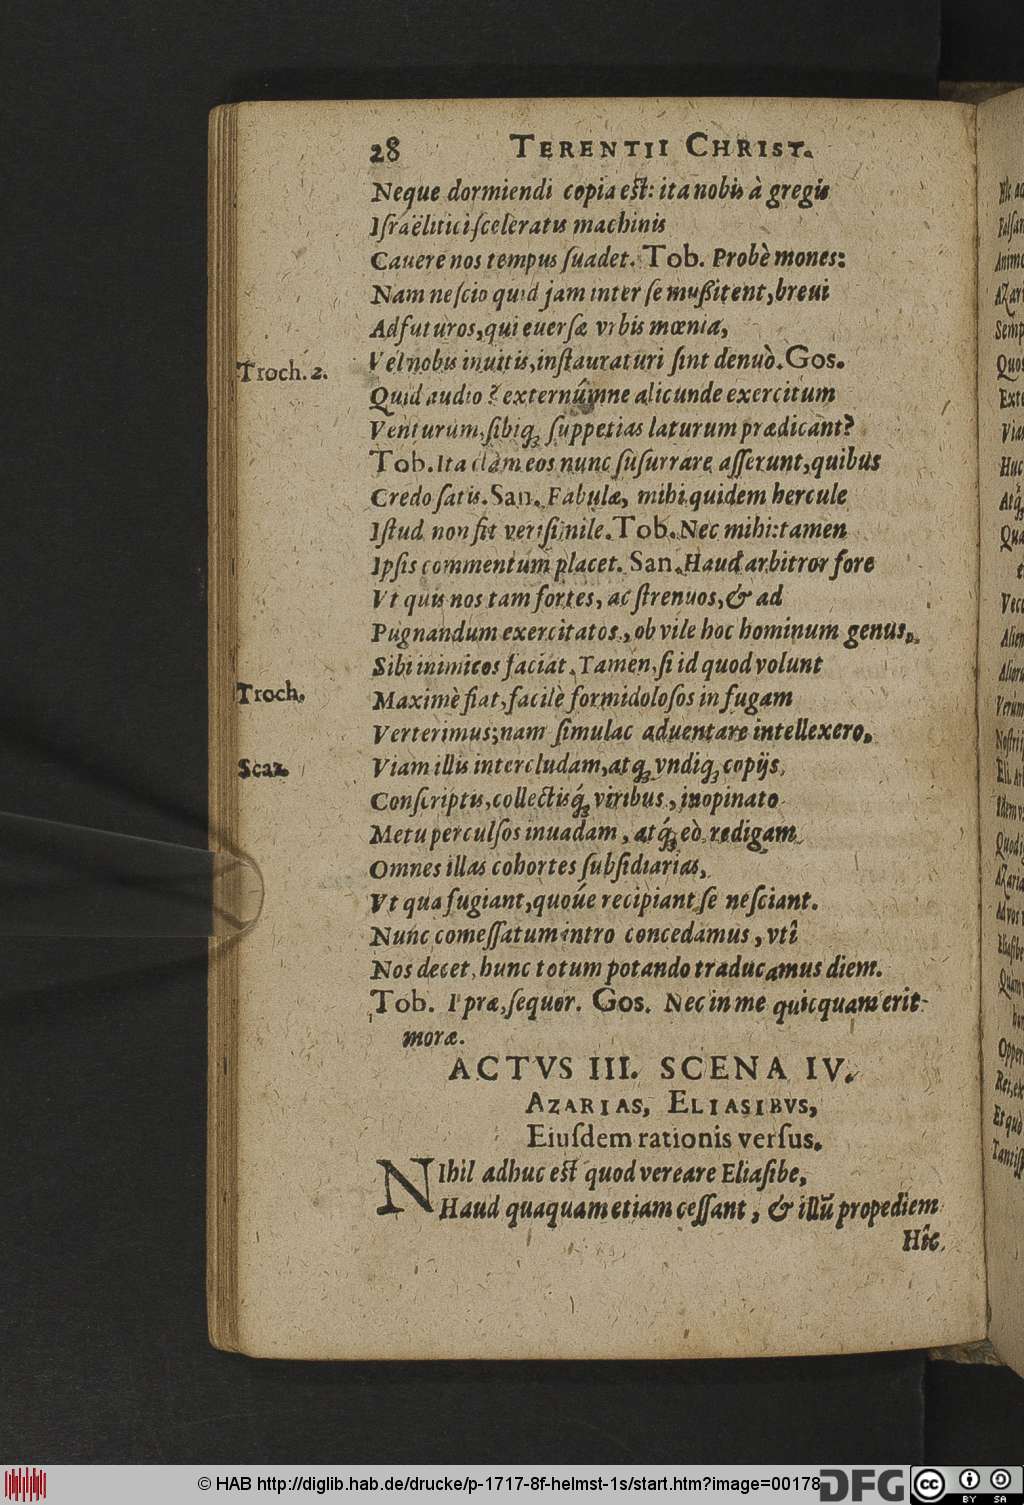 28 TERENTII CHRIST.
Neque dormiendi copia est: ita nobis à gregis
Iſraëlitici ſceleratis machinis
Cavere nos tempus ſuadet. Tob. Probè mones:
Nam neſcio quid jam inter ſe muſsitent, brevi
Adfuturos, qui everſæ vrbis mœnia,
Vel nobis invitis, inſtauraturi ſint denuò. Gos.
Troch. 2.
Quid audio? externûmne alicunde exercitum
Venturum, ſibiq; ſuppetias laturum prædicant?
Tob. Ita clàm eos nunc ſuſurrare aſſerunt, quibus
Credo ſatis. San. Fabulæ, mihi quidem hercule
Iſtud non fit veriſimile. Tob. Nec mihi: tamen
Ipſis commentum placet. San. Haud arbitror fore
Vt quis nos tam fortes, ac ſtrenuos, & ad
Pugnandum exercitatos, ob vile hoc hominum genus,
Sibi inimicos faciat. Tamen, ſi id quod volunt
Troch.
Maximè fiat, facilè formidoloſos in fugam
Verterimus; nam ſimulac adventare intellexero,
Scaz.
Viam illis intercludam, atq; vndiq; copijs
Conſcriptis, collectisq́; viribus, inopinato
Metu perculſos invadam, atq́; eò redigam
Omnes illas cohortes ſubſidiarias,
Vt qua fugiant, quoúe recipiant ſe neſciant.
Nunc comeſſatum intro concedamus, vtî
Nos decet, hunc totum potando traducamus diem.
Tob. I præ, ſequor. Gos. Nec in me quicquam erit
moræ.
ACTVS III. SCENA IV.
AZARIAS, ELIASIBVS,
Eiuſdem rationis verſus.
NIhil adhuc eſt quod vereare Eliaſibe,
Haud quaquam etiam ceſſant, & illũ propediem
Hîc
© HAB http://diglib.hab.de/drucke/p-1717-8f-helmst-1s/start.htm?image=00178
DFG
cc BY SA